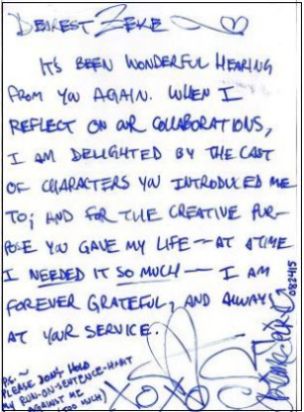 DEAREST ZEKE
IT'S BEEN WONDERFUL HEARING
FROM YOU AGAIN. WHEN I
REFLECT ON OUR COLLABORATIONS,
I AM DELIGHTED BY THE CAST
OF CHARACTERS YOU INTRODUCED ME
TO; AND FOR THE CREATIVE PUR-
POSE YOU GAVE MY LIFE — AT A TIME
I NEEDED IT SO MUCH — I AM
FOREVER GRATEFUL, AND ALWAYS
AT YOUR SERVICE.
XOXO
082415
P.S. ~
PLEASE DON'T HOLD
MY RUN-ON-SENTENCE-HABIT
AGAINST ME
(TOO MUCH)